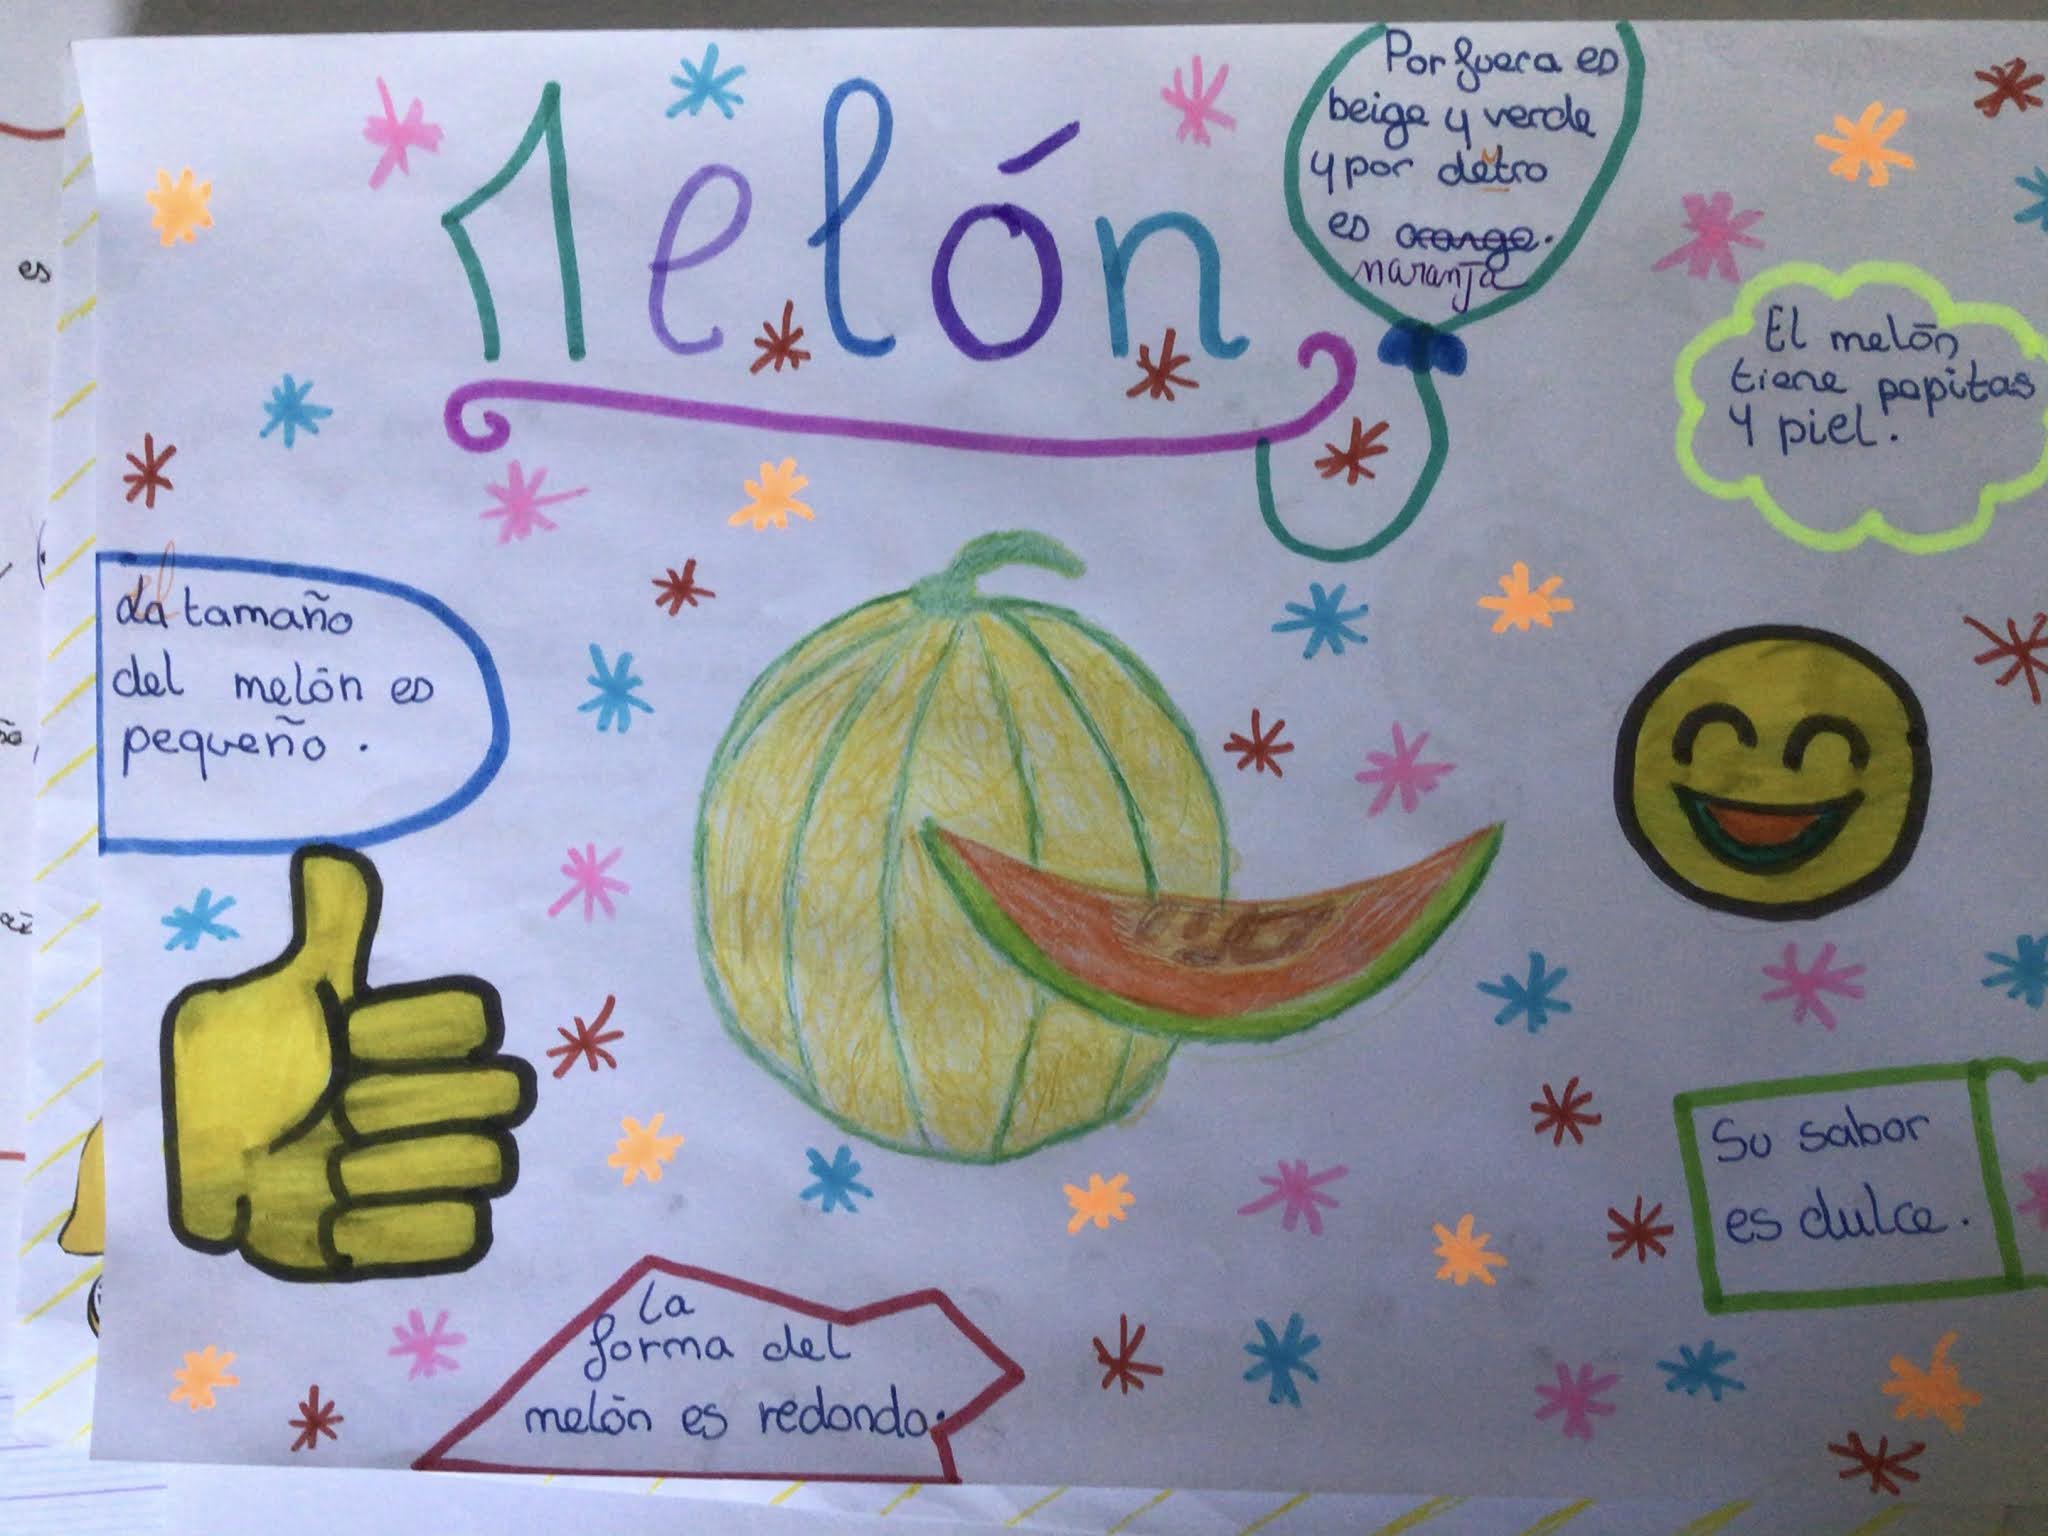 Melón
Por fuera es
beige y verde
y por detro
n
es orange.
naranja
El melón
tiene pepitas
y piel.
el
La tamaño
del melón es
pequeño.
Su sabor
es dulce.
La
forma del
melón es redondo.
es